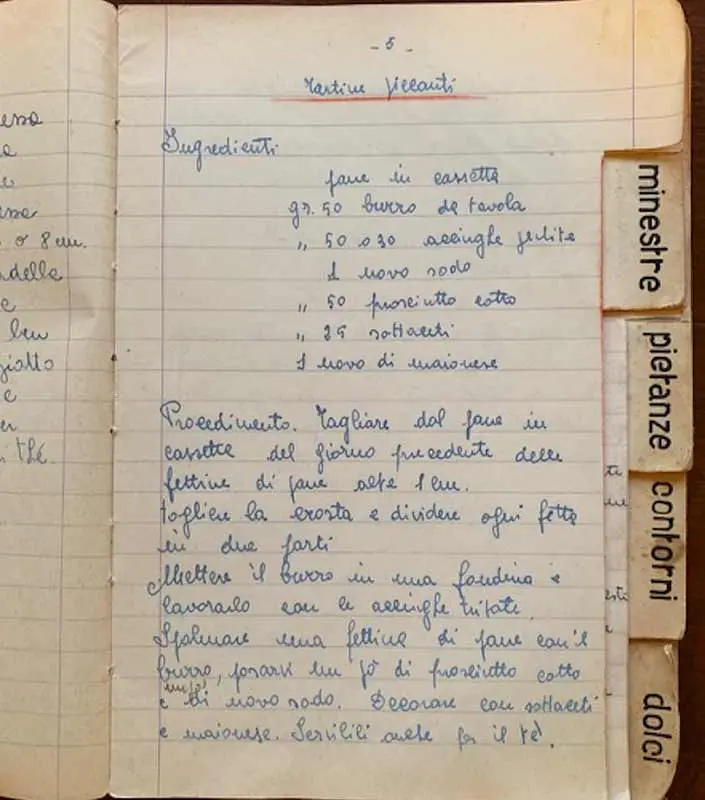 essa
a
e
esse
o 8 cm.
ndella
e
ben
giallo
e
er
i thé
- 5 -
Tartine piccanti
Ingredienti
pane in cassetta
gr. 50 burro da tavola
" 50 o 30 acciughe pulite
1 uovo sodo
" 50 prosciutto cotto
" 25 sottaceti
1 uovo di maionese
Procedimento. Tagliare dal pane in
cassetta del giorno precedente delle
fettine di pane alte 1 cm.
togliere la crosta e dividere ogni fetta
in due parti
Mettere il burro in una fondina e
lavorarlo con le acciughe tritate
Spalmare una fettina di pane con il
burro, posarvi un pò di prosciutto cotto
e un pò di uovo sodo. Decorare con sottaceti
e maionese. Servilili anche per il tè.
minestre
pietanze
contorni
dolci